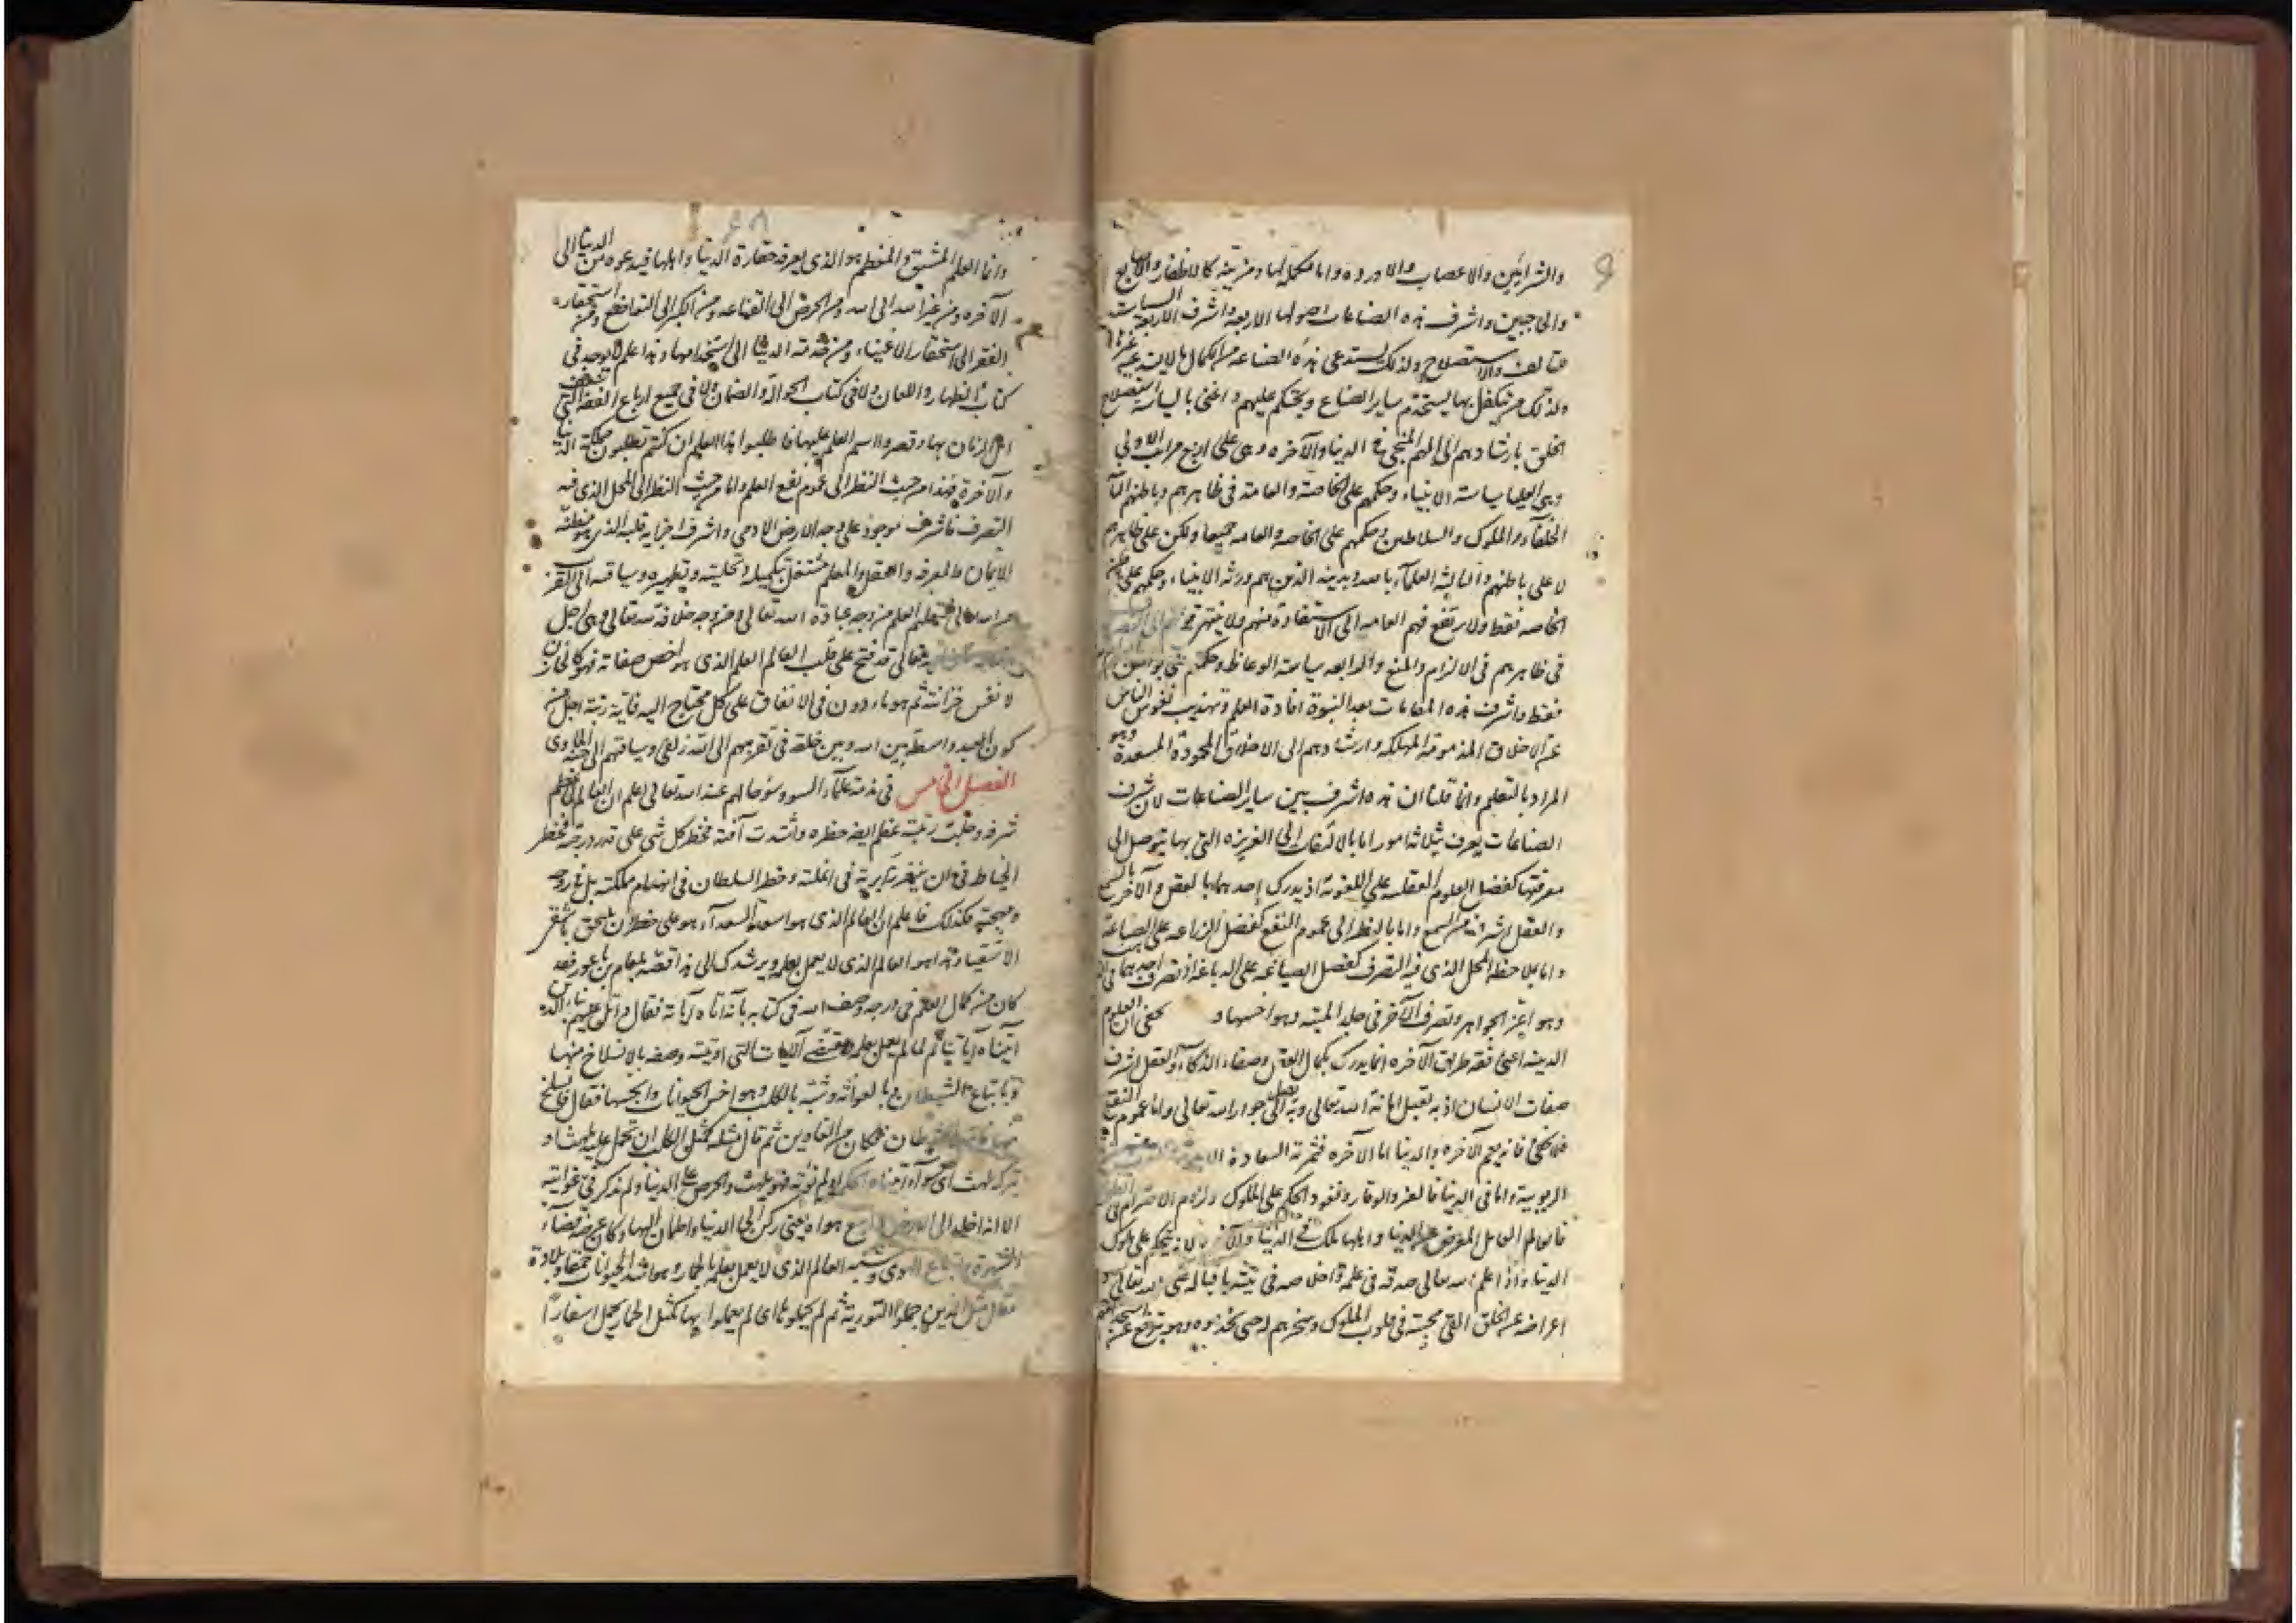 والشرايين والاعصاب والاورده واما مكملة لها ومزينة كالاظفار والاصابع
والحاجبين واشرف هذه الصناعات اصولها الاربعة واشرف الاربعة السياسات
والاستصلاح ولذلك يستدعى هذه الصناعه من الكمال ما لا يستدعيه غيرها
ولذلك من تكفل بها يستخدم ساير الصناع ويحتكم عليهم واعنى بالسياسة استصلاح
الخلق بارشادهم الى المنجى فى الدنيا والآخره وهى على اربع مراتب الاولى
وهى العليا سياسة الانبياء وحكمهم على الخاصة والعامة فى ظاهرهم وباطنهم
الخلفاء والملوك والسلاطين وحكمهم على الخاصه والعامه جميعا ولكن على ظاهرهم
لا على باطنهم والثالثه العلمآء بالله وبدينه الذين هم ورثه الانبياء وحكمهم على باطن
الخاصه فقط ولا يرتفع فهم العامه الى الاستفادة منهم ولا ينتهى
فى ظاهرهم فى الالزام والمنع والرابعه سياسة الوعاظ وحكمهم على بواطن
فقط واشرف هذه السياسات بعد النبوة افادة العلم وتهذيب نفوس الناس
عن الاخلاق المذمومة المهلكه وارشادهم الى الاخلاق المحمودة المسعدة وهو
المراد بالتعليم وانما قلنا ان هذه اشرف بين ساير الصناعات لان شرف
الصناعات يعرف بثلاثة امور اما بالالتفات الى الغريزه التى بها يتوصل الى
معرفتها كفضل العلوم العقليه على اللغوية اذ يدرك احدهما بالعقل والآخر بالسمع
والعقل اشرف من السمع واما بالنظر الى عموم النفع كفضل الزراعه على الصياغة
واما بملاحظه المحل الذى فيه التصرف كفضل الصياغه على الدباغه اذ تصرف احدهما فى
وهو اعز الجواهر وتصرف الآخر فى جلد الميته وهو اخسها و يخفى ان العلوم
الدينيه اعنى فقه طريق الآخره انما يدرك بكمال العقل وصفاء الذكآء والعقل اشرف
صفات الانسان اذ به تقبل امانة الله تعالى وبه يصل الى جوار الله تعالى واما عموم النفع
فلا يخفى فانه يعم الآخره والدنيا اما الآخره فثمرته السعادة
الربوبية واما فى الدنيا فالعز والوقار ونفوذ الحكم على الملوك ولزوم الاحترام فى
فالعالم العامل المعرض عن الدنيا واهلها ملك فى الدنيا والآخره لانه يحكم على ملوك
الدنيا واذا علم الله تعالى صدقه فى علمه واخلاصه فى نيته باقباله على الله تعالى و
اعراضه عن الخلق القى محبته فى قلوب الملوك وسخرهم له حتى يخدموه وهو يترفع عن
وانما العلم المشبق والمفطم هو الذى يعرف حقارة الدنيا واهلها فيدعوه من الدنيا الى
الآخره ومن غير الله الى الله ومن الحرص الى القناعه ومن الكبر الى التواضع ومن استحقار
الفقر الى استحقار الاغنياء ومن خدمة الدنيا الى استخدامها وهذا علم لا يوجد فى
كتاب الظهار واللعان ولا فى كتاب الحوالة والضمان ولا فى جميع ارباع الفقه التى
اهل الزمان بها وقصروا اسم العلم عليها فاطلبوا هذا العلم ان كنتم تطلبون مملكة الدنيا
والآخرة فهذا من حيث النظر الى عموم نفع العلم واما من حيث النظر الى المحل الذى فيه
التصرف فاشرف موجود على وجه الارض الادمى واشرف اجزايه قلبه الذى هو مظنة
الايمان والمعرفه والعقل والمعلم مشتغل بتكميله وتحليته وتطهيره وسياقه الى القرب
من الله تعالى فتعليم العلم من وجه عبادة الله تعالى ومن وجه خلافة الله تعالى وهى اجل
تعالى قد فتح على قلب العالم العلم الذى هو اخص صفاته فهو كالخازن
لانفس خزائنه ثم هو ماذون فى الانفاق على كل محتاج اليه فاية رتبة اجل من
كون العبد واسطة بين الله وبين خلقه فى تقريبهم الى الله زلفى وسياقهم الى جنة الماوى
الفصل الخامس فى مذمة علمآء السوء وسوء حالهم عند الله تعالى اعلم ان العالم لما عظم
شرفه وجلت رتبته عظم ايضا خطره واشتدت آفته فخطر كل شى على قدر درجته فخطر
الخياط فى ان فى ابملته وخطر السلطان فى انهدام مملكته بل فى روحه
ومهجته فكذلك فاعلم ان العالم الذى هو اسعد السعدآء هو على خطر ان يلحق باشقى
الاشقياء وهذا هو العالم الذى لا يعمل بعلمه ويرشدك الى هذا قصة بلعام بن باعور فقد
كان من كمال العلم فى درجه وصف الله فى كتابه بانه اتاه آياته فقال واتل عليهم نبا الذى
آتيناه آياتنا ثم لما لم يعمل بعلمه وبمقتضى الآيات التى اوتيته وصفه بالانسلاخ منها
وباتباع الشيطان وبالغواية وشبه بالكلب وهو اخس الحيوانات وانجسها فقال فانسلخ
منها فاتبعه الشيطان فكان من الغاوين ثم قال فمثله كمثل الكلب ان تحمل عليه يلهث او
تتركه يلهث اى سوآء آتيناه الحكمة او لم نؤته فهو يلهث والحرص على الدنيا ولم يذكر فى غوايته
الا انه اخلد الى الارض واتبع هواه يعنى ركن الى الدنيا واطمان اليها وكان غرضه قضاء
الشهوة واتباع الهوى وشبه العالم الذى لا يعمل بعلمه بالحمار وهو اشد الحيوانات حمقا وبلادة
فقال مثل الذين حملوا التورية ثم لم يحملوها اى لم يعملوا بها كمثل الحمار يحمل اسفارا